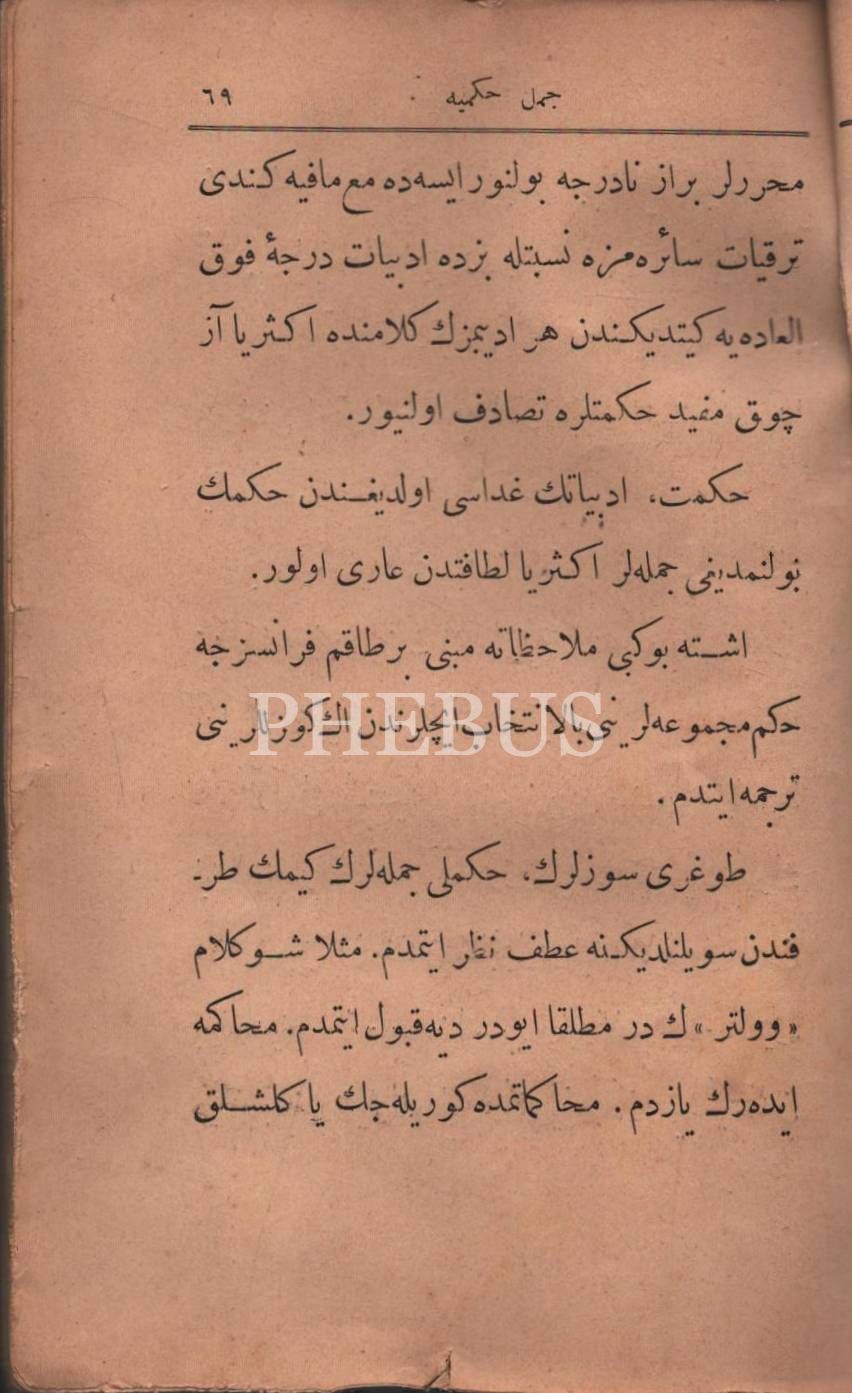 جمل حكميه ٦٩
محررلر براز نادرجه بولنور ايسه‌ده مع مافيه كندى
ترقيات سائره‌مزه نسبتله بزده ادبيات درجۀ فوق
العاده‌يه كيتديكندن هر اديبمزك كلامنده اكثريا آز
چوق مفيد حكمتلره تصادف اولنيور.
حكمت، ادبياتك غداسى اولديغندن حكمك
بولنمديغى جمله‌لر اكثريا لطافتدن عارى اولور.
اشته بوكبى ملاحظاته مبنى برطاقم فرانسزجه
حكم مجموعه‌لرينى بالانتخاب ايچلرندن اك كوزللرينى
ترجمه ايتدم.
طوغرى سوزلرك، حكملى جمله‌لرك كيمك طر-
فندن سويلنلديكنه عطف نظر ايتمدم. مثلا شو كلام
«وولتر» ك در مطلقا ايودر ديه قبول ايتمدم. محاكمه
ايده‌رك يازدم. محاكماتمده كوريله‌جك ياكلشلق
PHEBUS